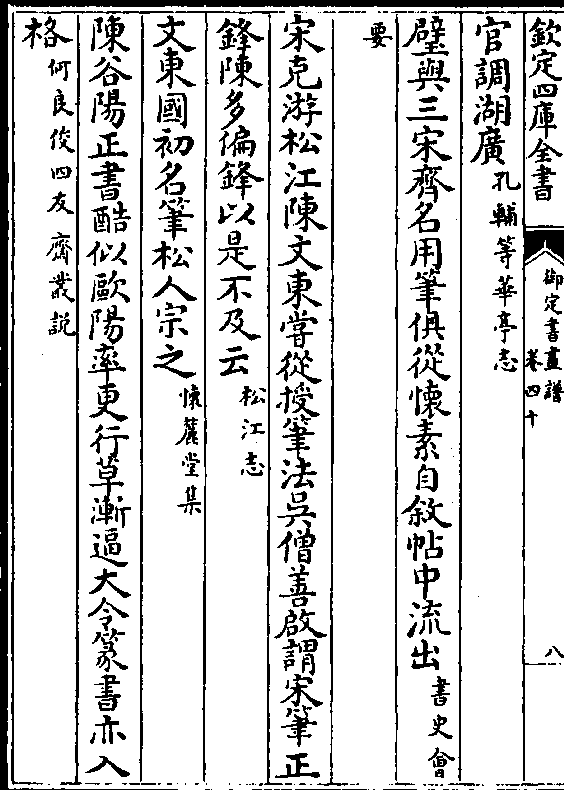 欽定四庫全書
御定書畫譜
卷四十
八
官調湖廣孔輔等華亭志
璧與三宋齊名用筆俱從懷素自敘帖中流出書史會
要
宋克游松江陳文東嘗從授筆法吳僧善啟謂宋筆正
鋒陳多偏鋒以是不及云松江志
文東國初名筆松人宗之懷麓堂集
陳谷陽正書酷似歐陽率更行草漸逼大令篆書亦入
格何良俊四友齋叢說